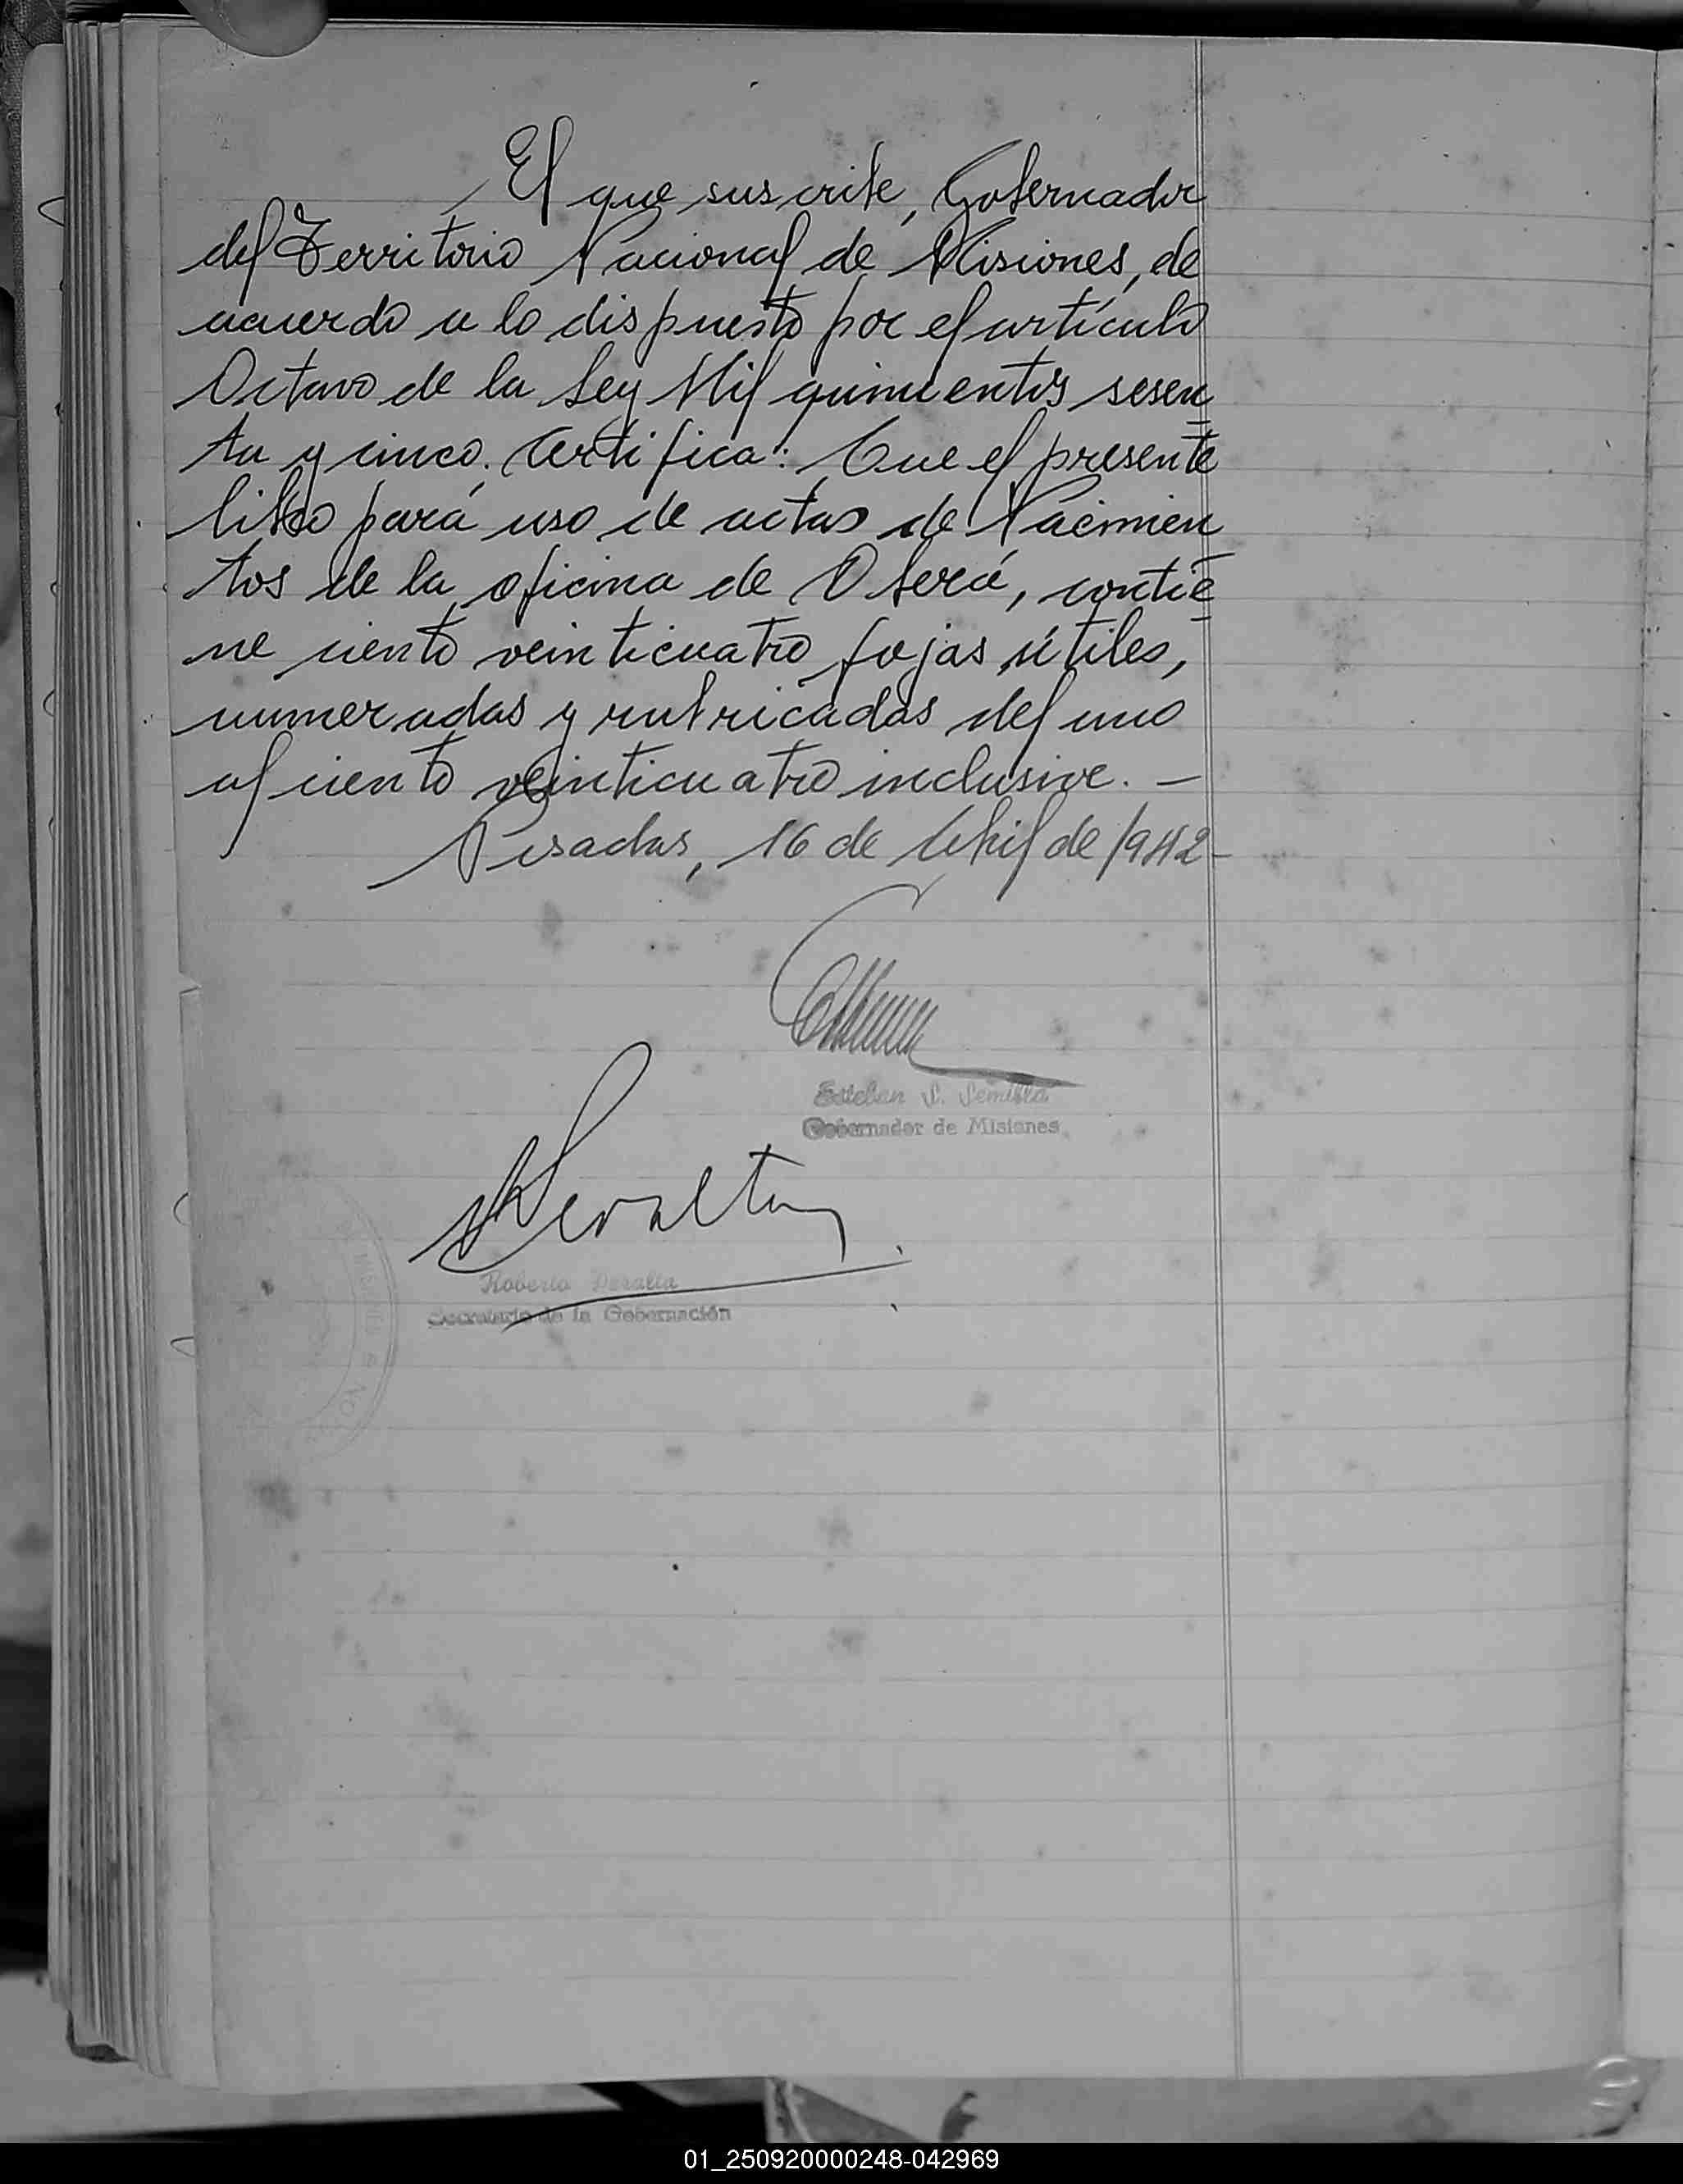 El que suscribe, Gobernador
del Territorio Nacional de Misiones, de
acuerdo a lo dispuesto por el artículo
Octavo de la Ley Mil quinientos sesen
ta y cinco. Certifica: Que el presente
libro para uso de actas de Nacimien
tos de la oficina de Oberá, contie
ne ciento veinticuatro fojas útiles,
numeradas y rubricadas del uno
al ciento veinticuatro inclusive. —
Posadas, 16 de Abril de 1942-
Esteban S. Semilla
Gobernador de Misiones
Peralta
Roberto Peralta
Secretario de la Gobernación
01_250920000248-042969